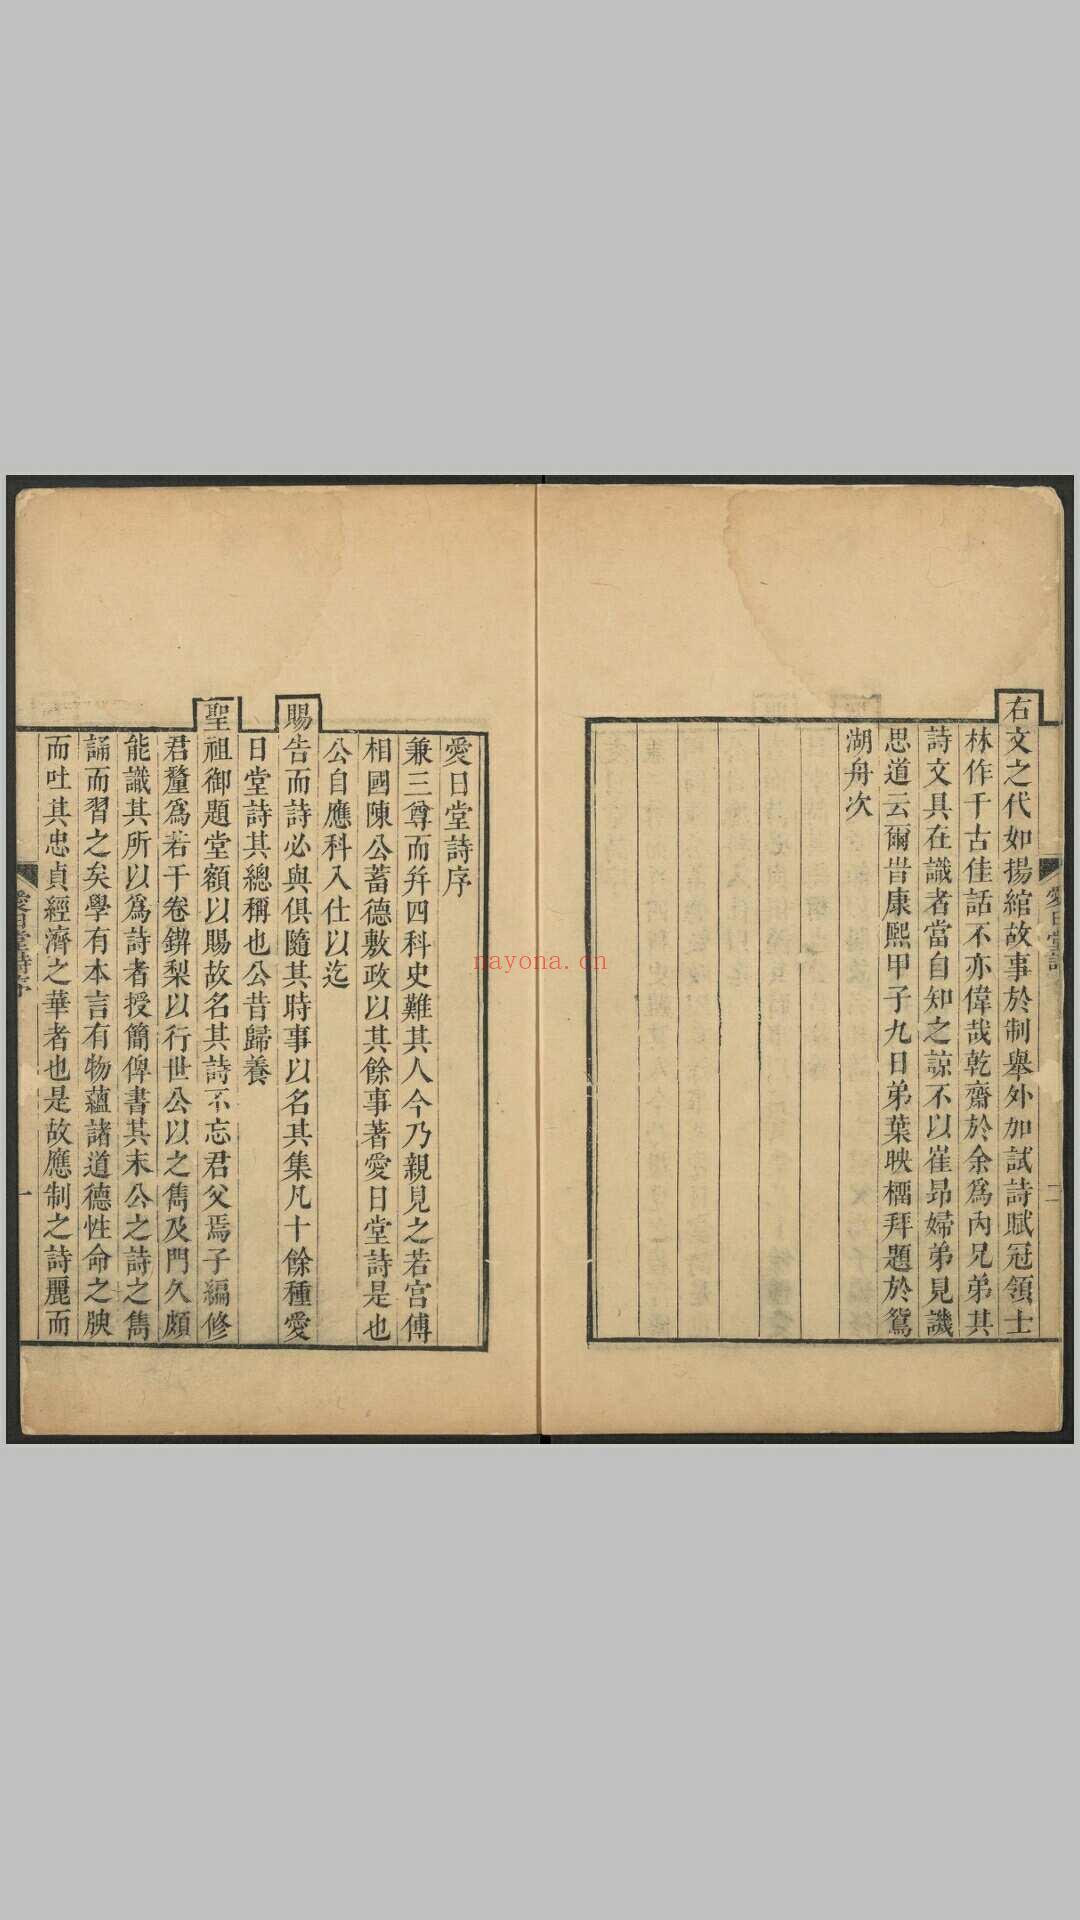 右文之代如揚綰故事於制舉外加試詩賦冠領士
林作千古佳話不亦偉哉乾齋於余爲內兄弟其
詩文具在識者當自知之諒不以崔昂婦弟見譏
思道云爾昔康熙甲子九日弟葉映榴拜題於鴛
湖舟次
愛日堂詩序
兼三尊而幷四科史難其人今乃親見之若宮傅
相國陳公蓄德敷政以其餘事著愛日堂詩是也
公自應科入仕以迄
賜告而詩必與俱隨其時事以名其集凡十餘種愛
日堂詩其總稱也公昔歸養
聖祖御題堂額以賜故名其詩不忘君父焉子編修
君釐爲若干卷鍥梨以行世公以之雋及門久頗
能識其所以爲詩者授簡俾書其末公之詩之雋
誦而習之矣學有本言有物蘊諸道德性命之腴
而吐其忠貞經濟之華者也是故應制之詩麗而
愛日堂詩序
一
nayona.cn